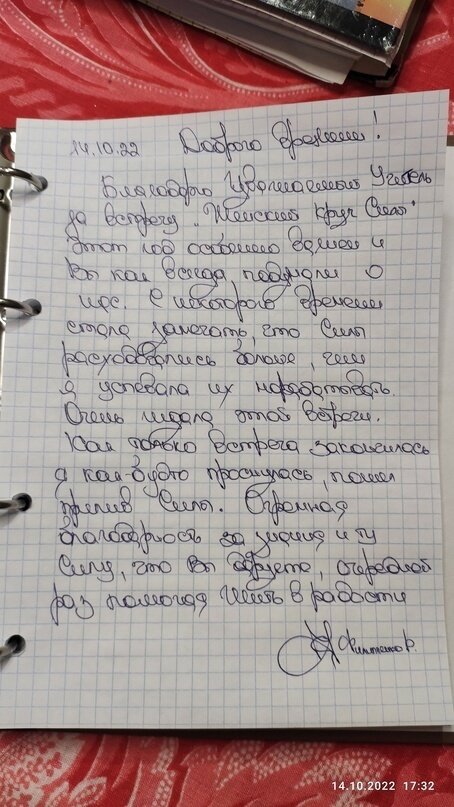 14.10.22 Доброго времени!
Благодарю Уважаемый Учитель
за встречу "Женский круг Силы"
Этот год особенно важен и
Вы как всегда подумали о
нас. С некоторого времени
стала замечать, что Силы
расходовались больше, чем
я успевала их нарабатывать.
Очень ждала этой встречи.
Как только встреча закончилась
я как-будто проснулась, пошел
прилив Силы. Огромная
благодарность за знания и ту
Силу, что Вы даруете, очередной
раз помогая Жить в радости
14.10.2022 17:32